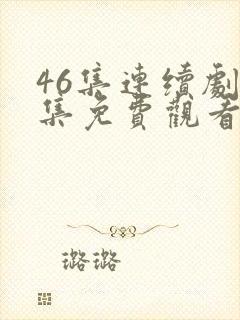 46集連續劇
集免費觀看
璐璐